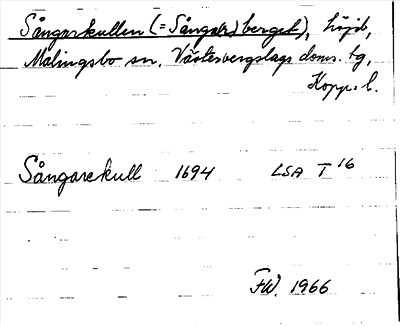 Sångarkullen (=Sångar)berget), höjd,
Malingsbo sn, Västerbergslags doms. tg,
Kopp. l.
Sångarekull 1694 LSA T 16
F.W. 1966